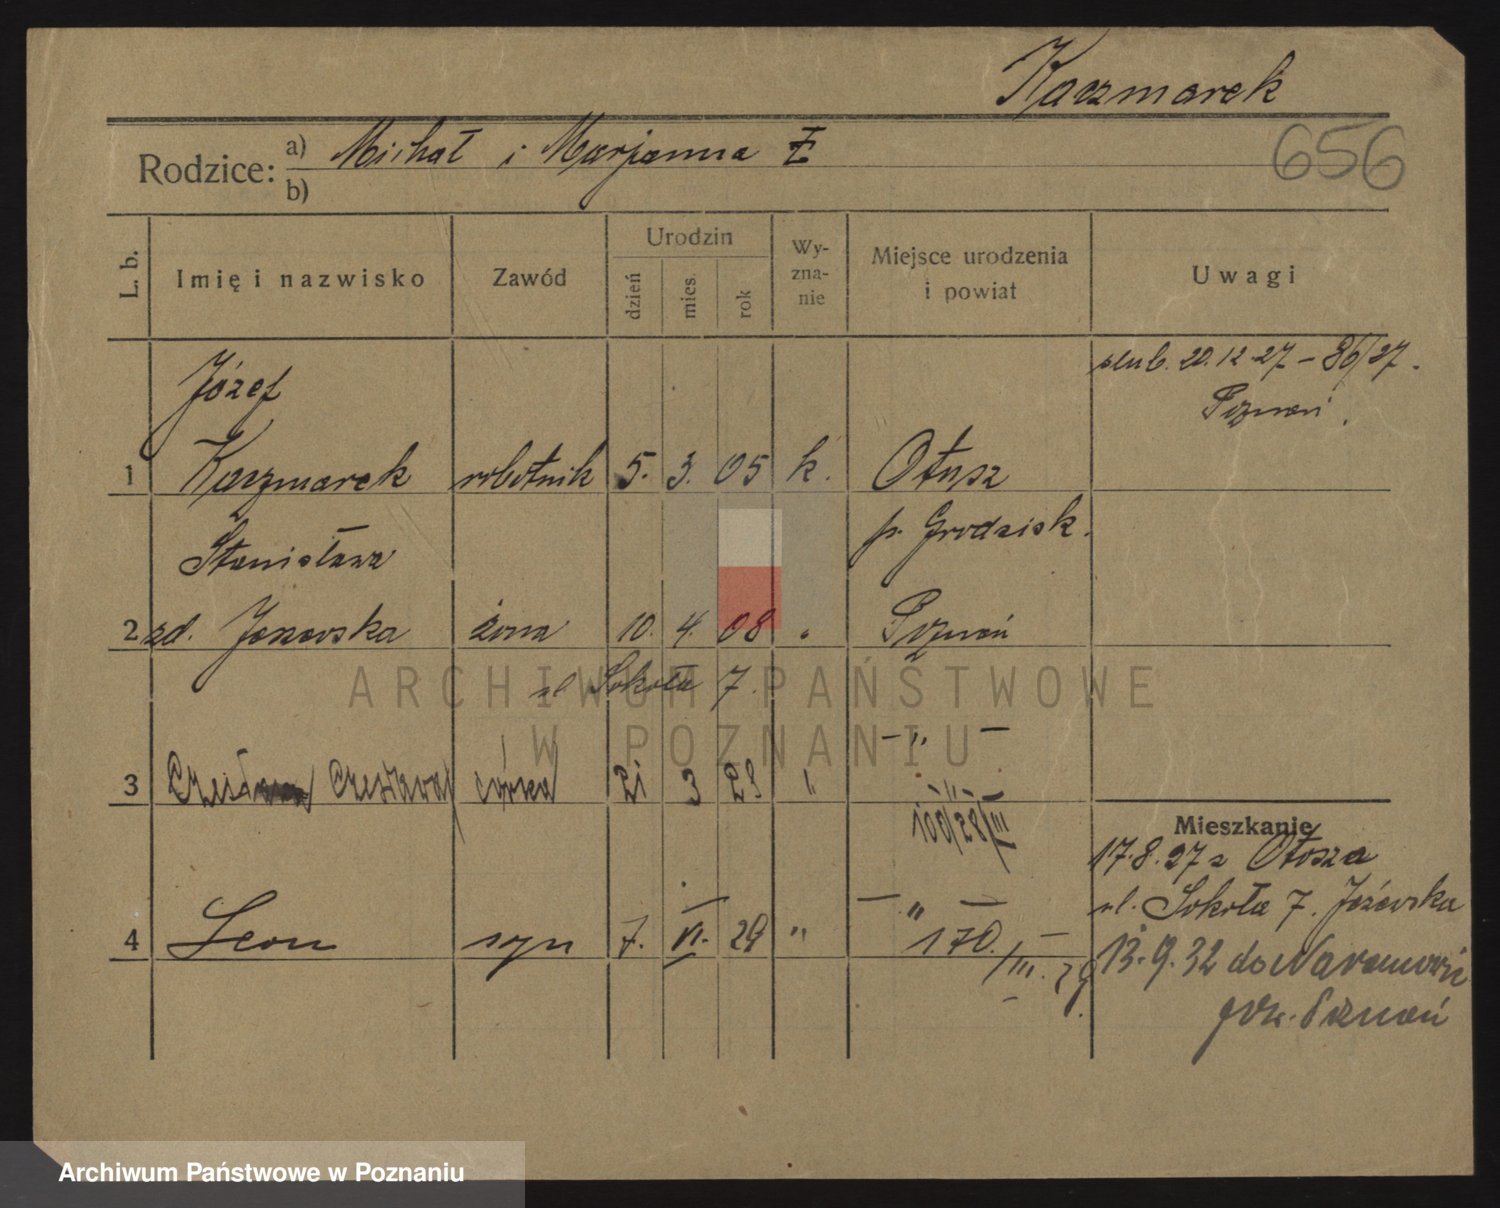 Kaczmarek
656
Rodzice: a) Michał i Marjanna Ł
b)
L. b.
Imię i nazwisko
Zawód
Urodzin
dzień
mies.
rok
Wy-
zna-
nie
Miejsce urodzenia
i powiat
Uwagi
ślub. 20.12.27 – 86/27.
Poznań.
Józef
1 Kaczmarek robotnik 5. 3. 05 k. Otusz
p. Grodzisk.
Stanisława
2 zd. żona 10. 4. 08 " Poznań
ul Sokoła 7.
– " –
3 Czesława córka 21 3 28 "
– " –
100/28/III
Mieszkanie
17.8.27 z Otosza
ul. Sokoła 7. Jeżewska
– " –
4 Leon syn 7. VI. 29 " 170.
/III. 29.
13.9.32 do Naramowic
pow. Poznań
ARCHIWUM PAŃSTWOWE
W POZNANIU
Archiwum Państwowe w Poznaniu